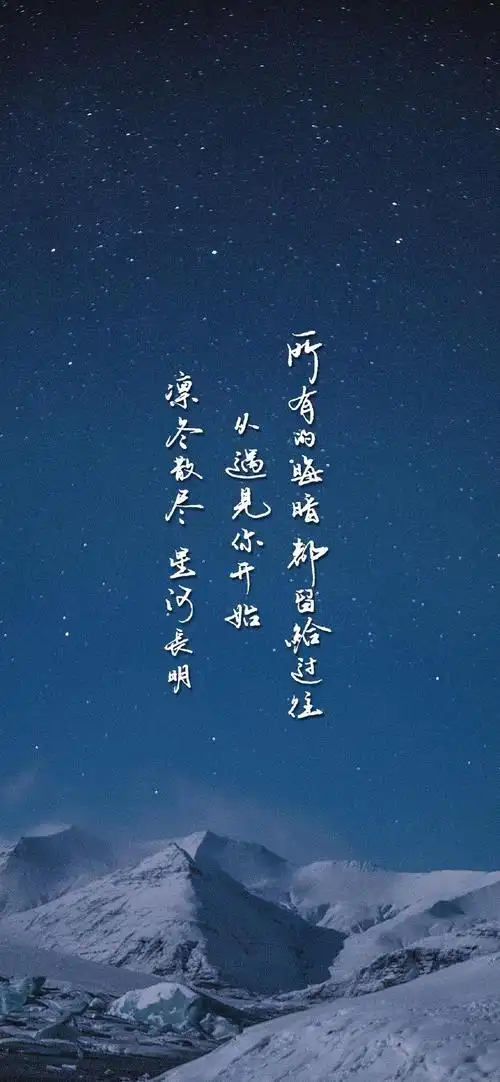 所有的晦暗都留给过往
从遇見你开始
凛冬散尽 星河長明